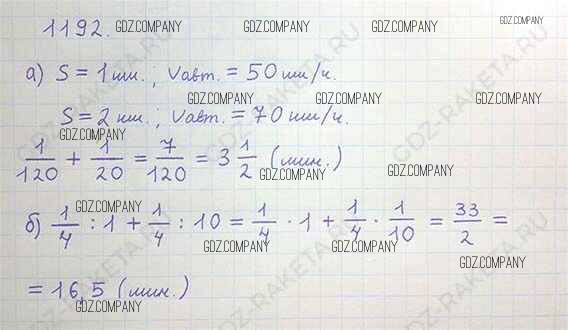 1192. GDZ.COMPANY GDZ.COMPANY GDZ.COMPANY GDZ.COMPANY
а) S = 1 км. ; Vавт. = 50 км/ч.
GDZ.COMPANY GDZ.COMPANY GDZ.COMPANY
S = 2 км. ; Vавт. = 70 км/ч.
GDZ.COMPANY
1/120 + 1/20 = 7/120 = 3 1/2 (мин.)
GDZ.COMPANY GDZ.COMPANY
GDZ.COMPANY
б) 1/4 : 1 + 1/4 : 10 = 1/4 · 1 + 1/4 · 1/10 = 33/2 =
GDZ.COMPANY GDZ.COMPANY
GDZ.COMPANY
= 16,5 (мин.)
GDZ.COMPANY
GDZ-RAKETA.RU
GDZ-RAKETA.RU
GDZ-RAKETA.RU
GDZ-RAKETA.RU